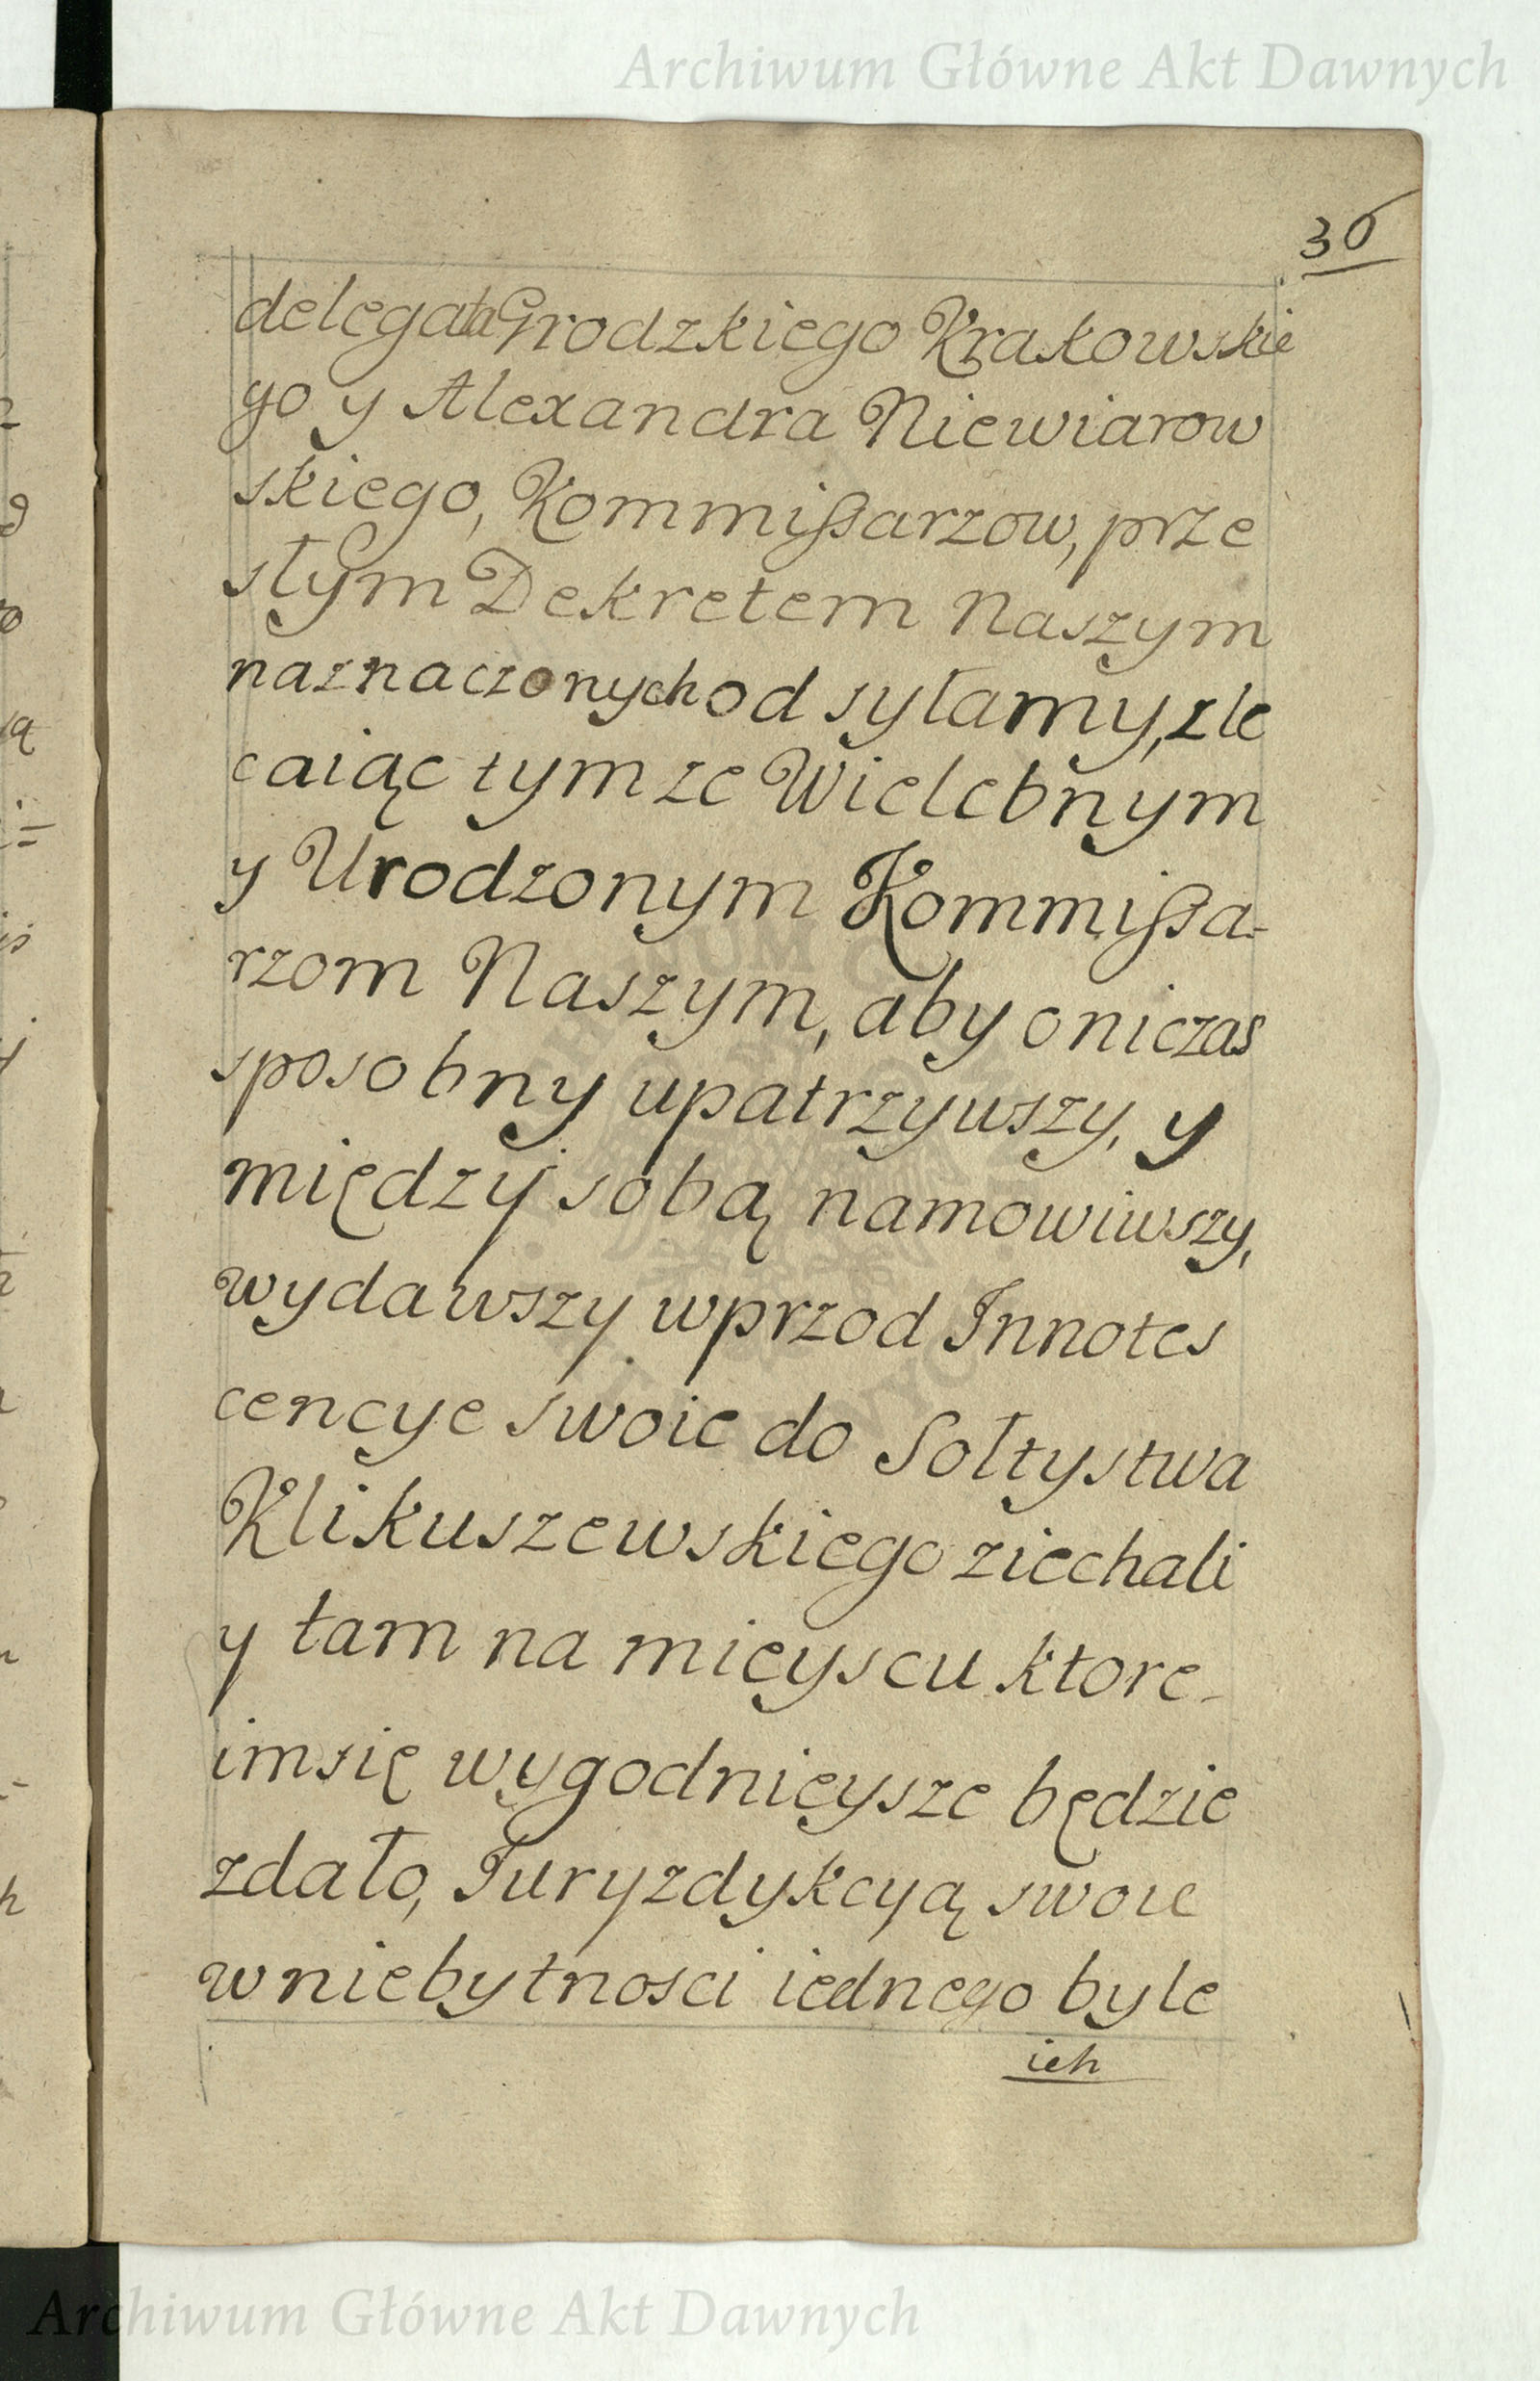 Archiwum Główne Akt Dawnych
36
delegata Grodzkiego Krakowskie
go y Alexandra Niewiarow
skiego, Kommißarzow, prze
stym Dekretem Naszym
naznaczonych od syłamy, zle
caiąc tymze Wielebnym
y Urodzonym Kommißa-
rzom Naszym, aby oni czas
sposobny upatrzyuszy, y
między sobą namowiwszy,
wydawszy wprzod Innotes
cencye swoie do Sołtystwa
Klikuszewskiego ziechali
y tam na mieyscu ktore-
im się wygodnieysze będzie
zdało, Juryzdykcyą swoie
w niebytnosci iednego byle
ich
Archiwum Główne Akt Dawnych